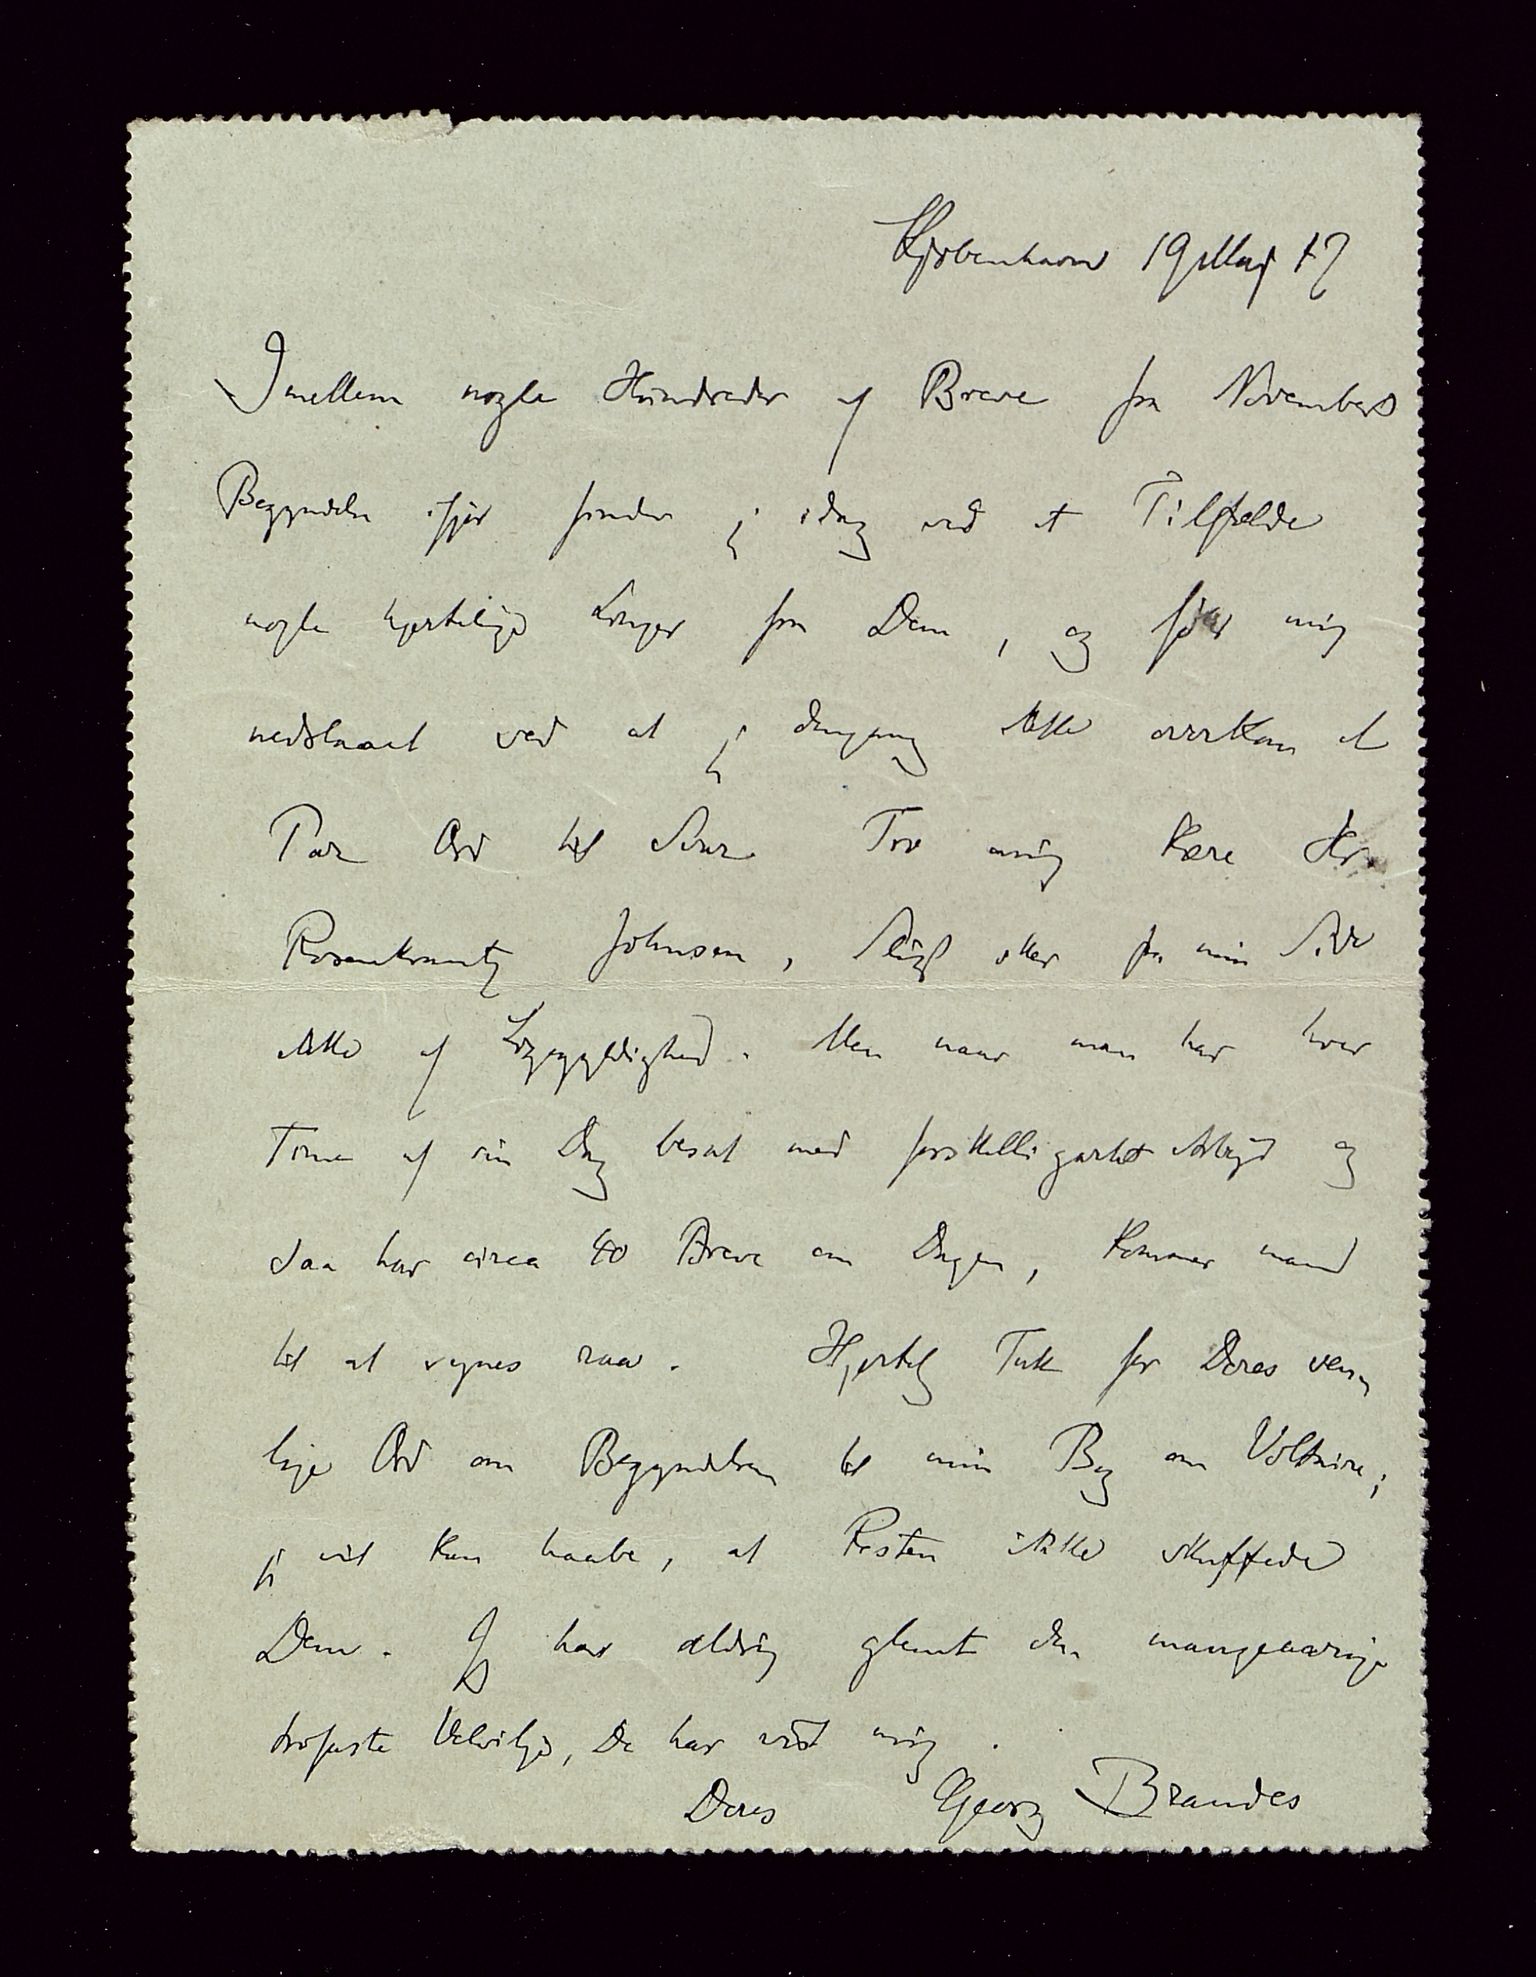 Kjøbenhavn 19 Maj 17
Imellem nogle Hundreder af Breve fra Novembers
Begyndelse ifjor finder jeg idag ved et Tilfælde
nogle hjertelige Linjer fra Dem, og føler mig
nedslaaet ved at jeg dengang ikke overkom et
Par Ord til Svar. Tro mig kære Hr.
Rosenkrantz Johnsen, Sligt sker fra min Side
ikke af Ligegyldighed. Men naar man har hver
Time af sin Dag besat med forskelligartet Arbejd og
saa har circa 40 Breve om Dagen, kommer man
til at synes raa. Hjertelig Tak for Deres venn
lige Ord om Begyndelsen til min Bog om Voltaire;
jeg vil kun haabe, at Resten ikke skuffede
Dem. Jeg har aldrig glemt den mangeaarige
trofaste Velvilje, De har vist mig.
Deres Georg Brandes